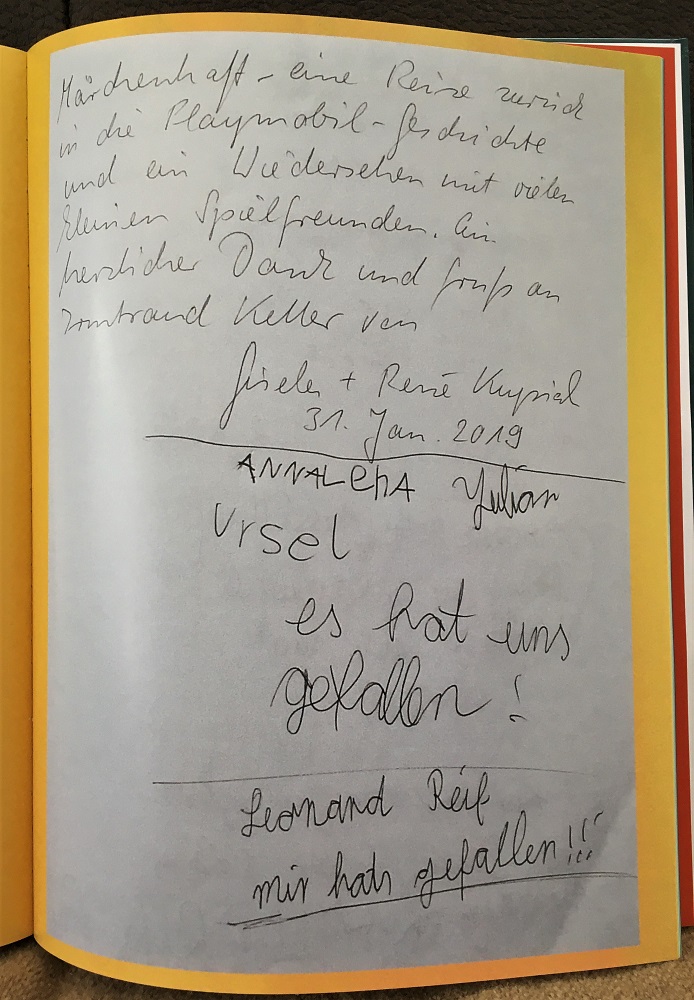 Märchenhaft - eine Reise zurück
in die Playmobil-Geschichte
und ein Wiedersehen mit vielen
kleinen Spielfreunden. Ein
herzlicher Dank und Gruß an
Keller von
Gisela + René
31. Jan. 2019
ANNALENA Julian
Ursel
es hat uns
gefallen!
Leonard Reif
mir hats gefallen!!!